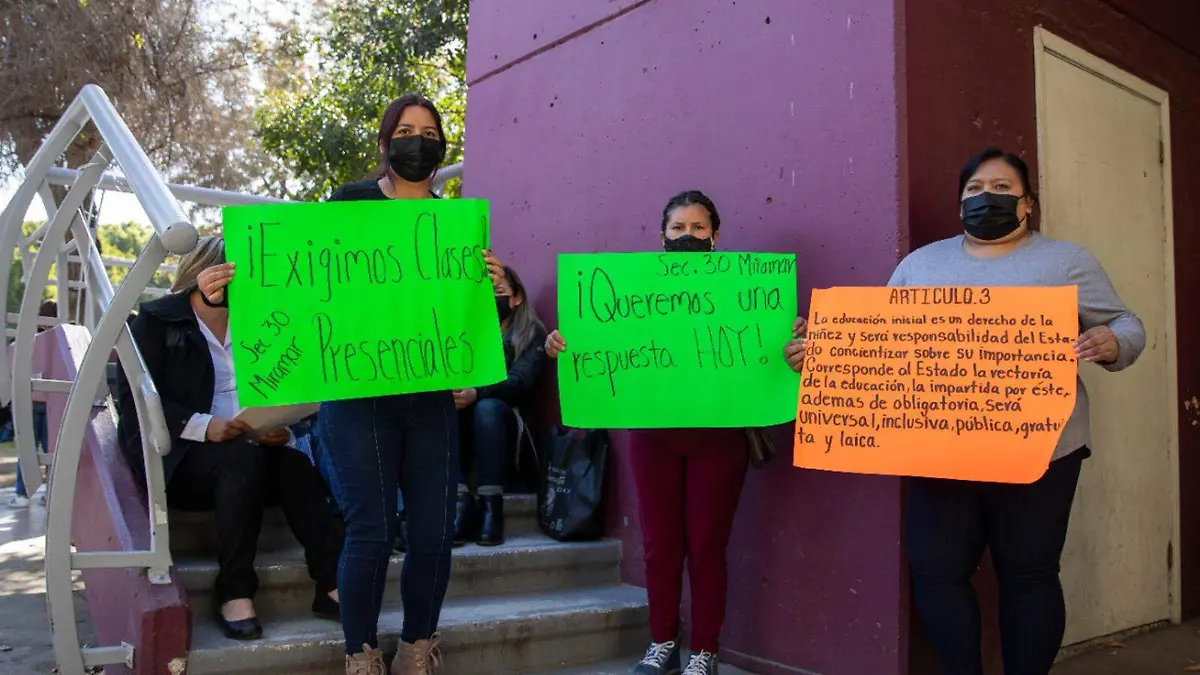 ¡Exigimos Clases!
Presenciales
Sec. 30
Miramar
Sec. 30 Miramar
¡Queremos una
respuesta HOY!
ARTICULO.3
La educación inicial es un derecho de la
niñez y será responsabilidad del Esta-
do concientizar sobre su importancia.
Corresponde al Estado la rectoría
de la educación, la impartida por éste,
ademas de obligatoria, será
universal, inclusiva, pública, gratui
ta y laica.